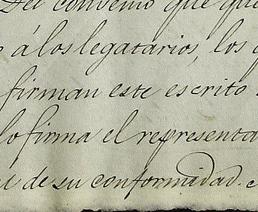 Del convenio que que
á los legatarios, los
firman este escrito
lo firma el representa
de su conformidad.